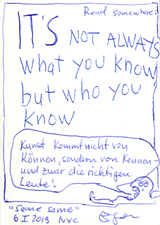 Read somewhere:
IT'S NOT ALWAYS
what you know
but who you
know
Kunst kommt nicht von
Können, sondern von Kennen -
und zwar die richtigen
Leute!
"same same"
6 I 2013 NYC